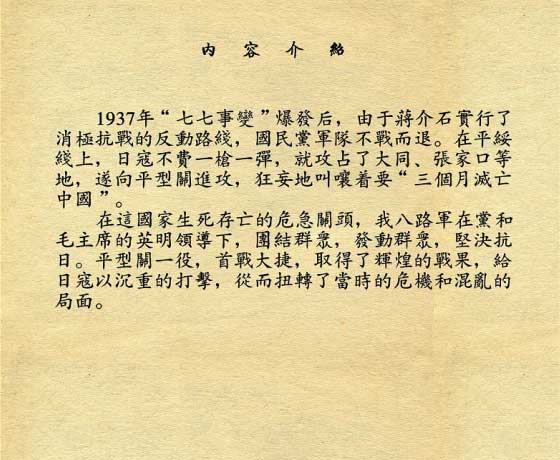 內容介紹
1937年“七七事變”爆發后，由于蔣介石實行了
消極抗戰的反動路綫，國民黨軍隊不戰而退。在平綏
綫上，日寇不費一槍一彈，就攻占了大同、張家口等
地，遂向平型關進攻，狂妄地叫嚷着要“三個月滅亡
中國”。
在這國家生死存亡的危急關頭，我八路軍在黨和
毛主席的英明領導下，團結群衆，發動群衆，堅決抗
日。平型關一役，首戰大捷，取得了輝煌的戰果，給
日寇以沉重的打擊，從而扭轉了當時的危機和混亂的
局面。